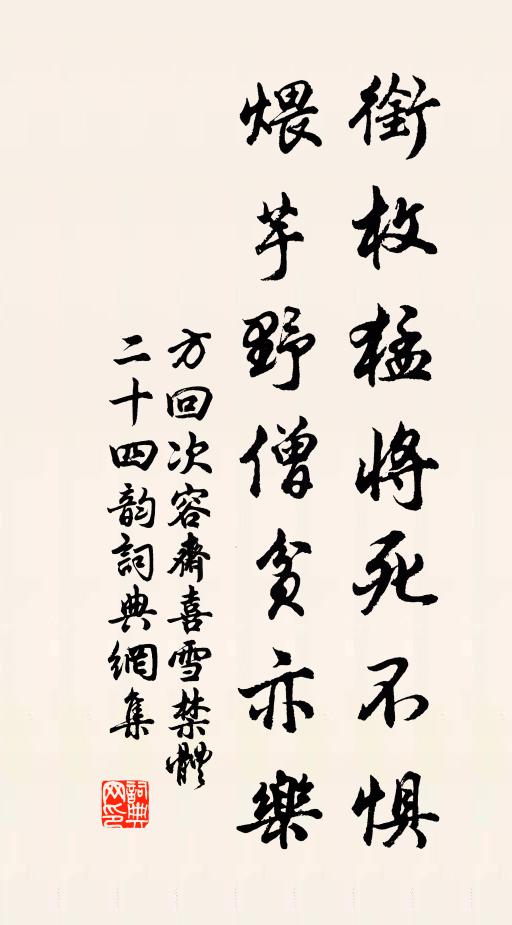 銜枚猛將死不惧
煨芋野僧貧亦樂
方回次容齋喜雪禁體
二十四韵詞典網集
詞典网印